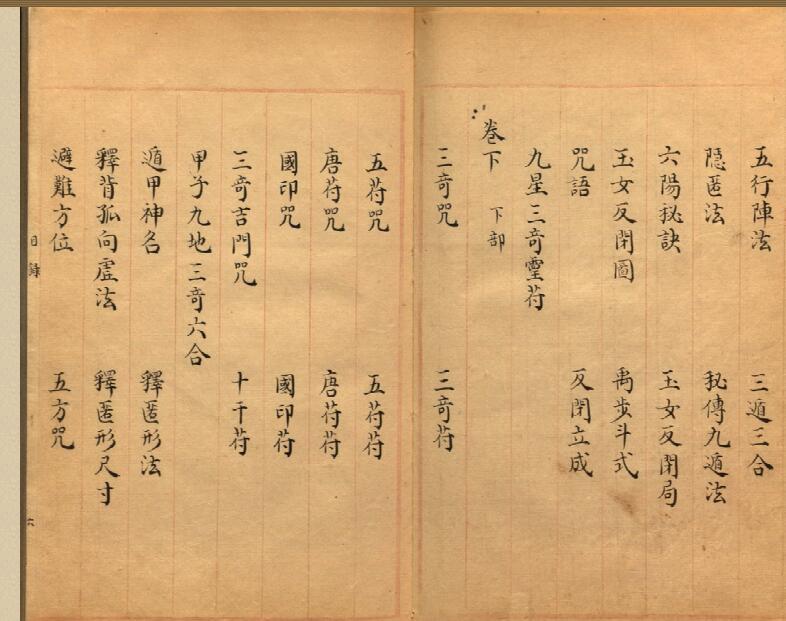 五行陣法 三遁三合
隠匿法 秘傳九遁法
六陽秘訣 玉女反閉局
玉女反閉圖 禹步斗式
咒語 反閉立成
卷下 下部
九星三奇靈苻
三奇咒 三奇苻
五苻咒 五苻苻
唐苻咒 唐苻苻
國印咒 國印苻
三奇吉門咒 十干苻
甲子九地三奇六合
遁甲神名 釋匿形法
釋背孤向虛法 釋匿形尺寸
避難方位 五方咒
目錄
六